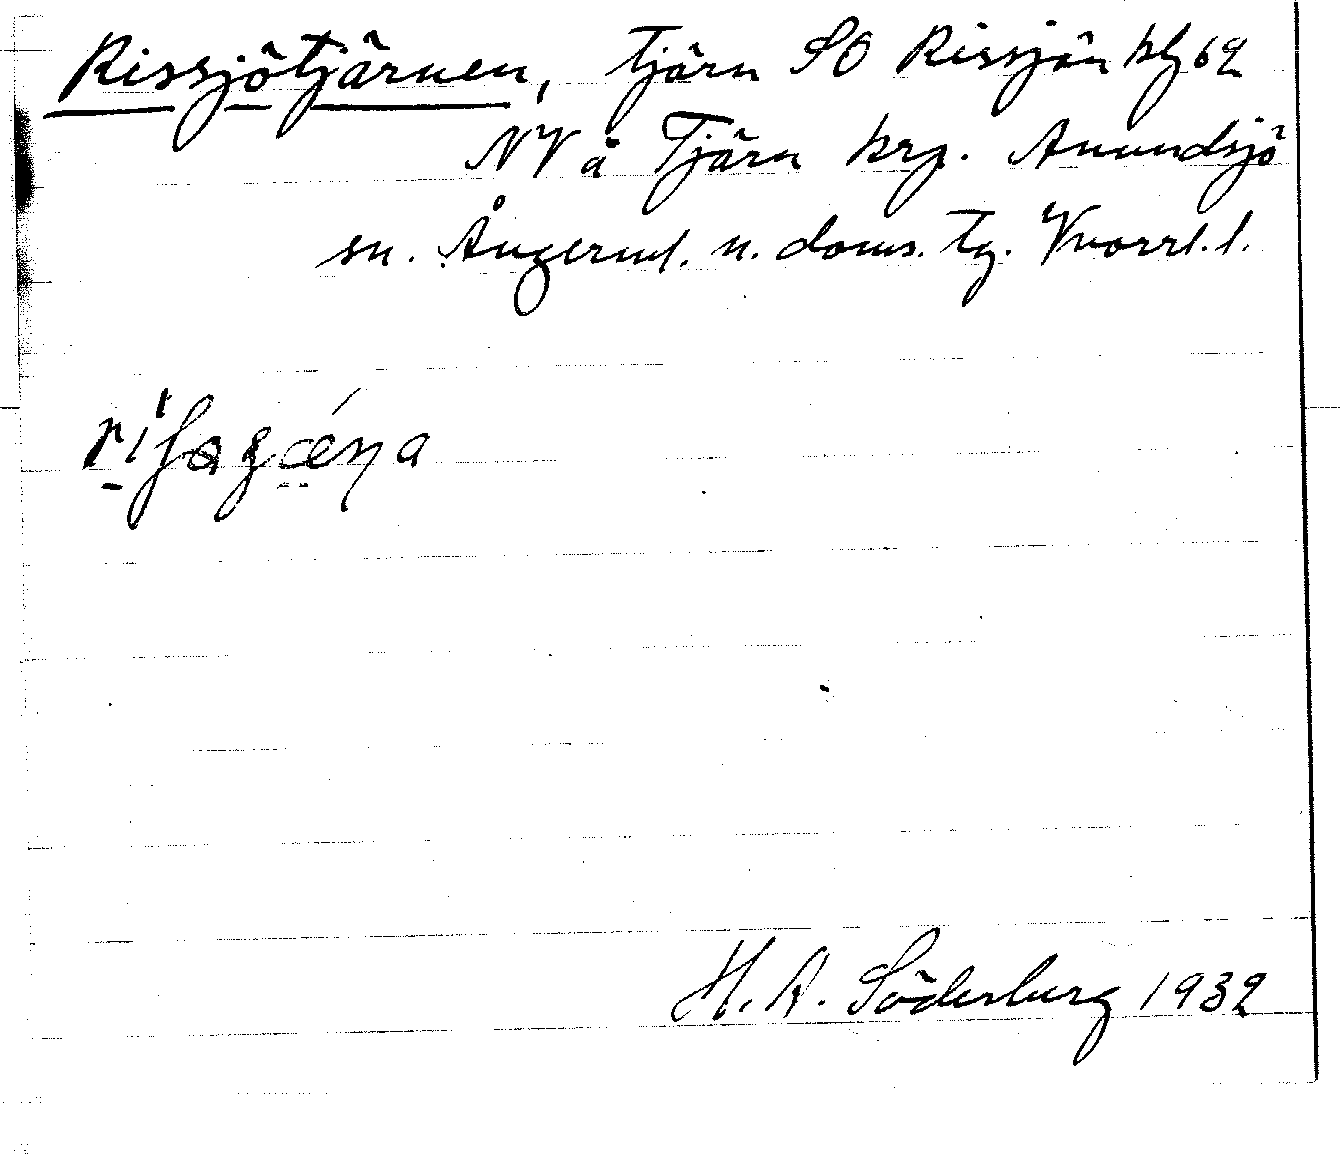 Rissjötjärnen, Tjärn SO Rissjön blg 62
NV å Tjärn krp. Anundsjö
sn. Ångerml. n. doms. tg. Vnorrl. l.
H. A. Söderberg 1932